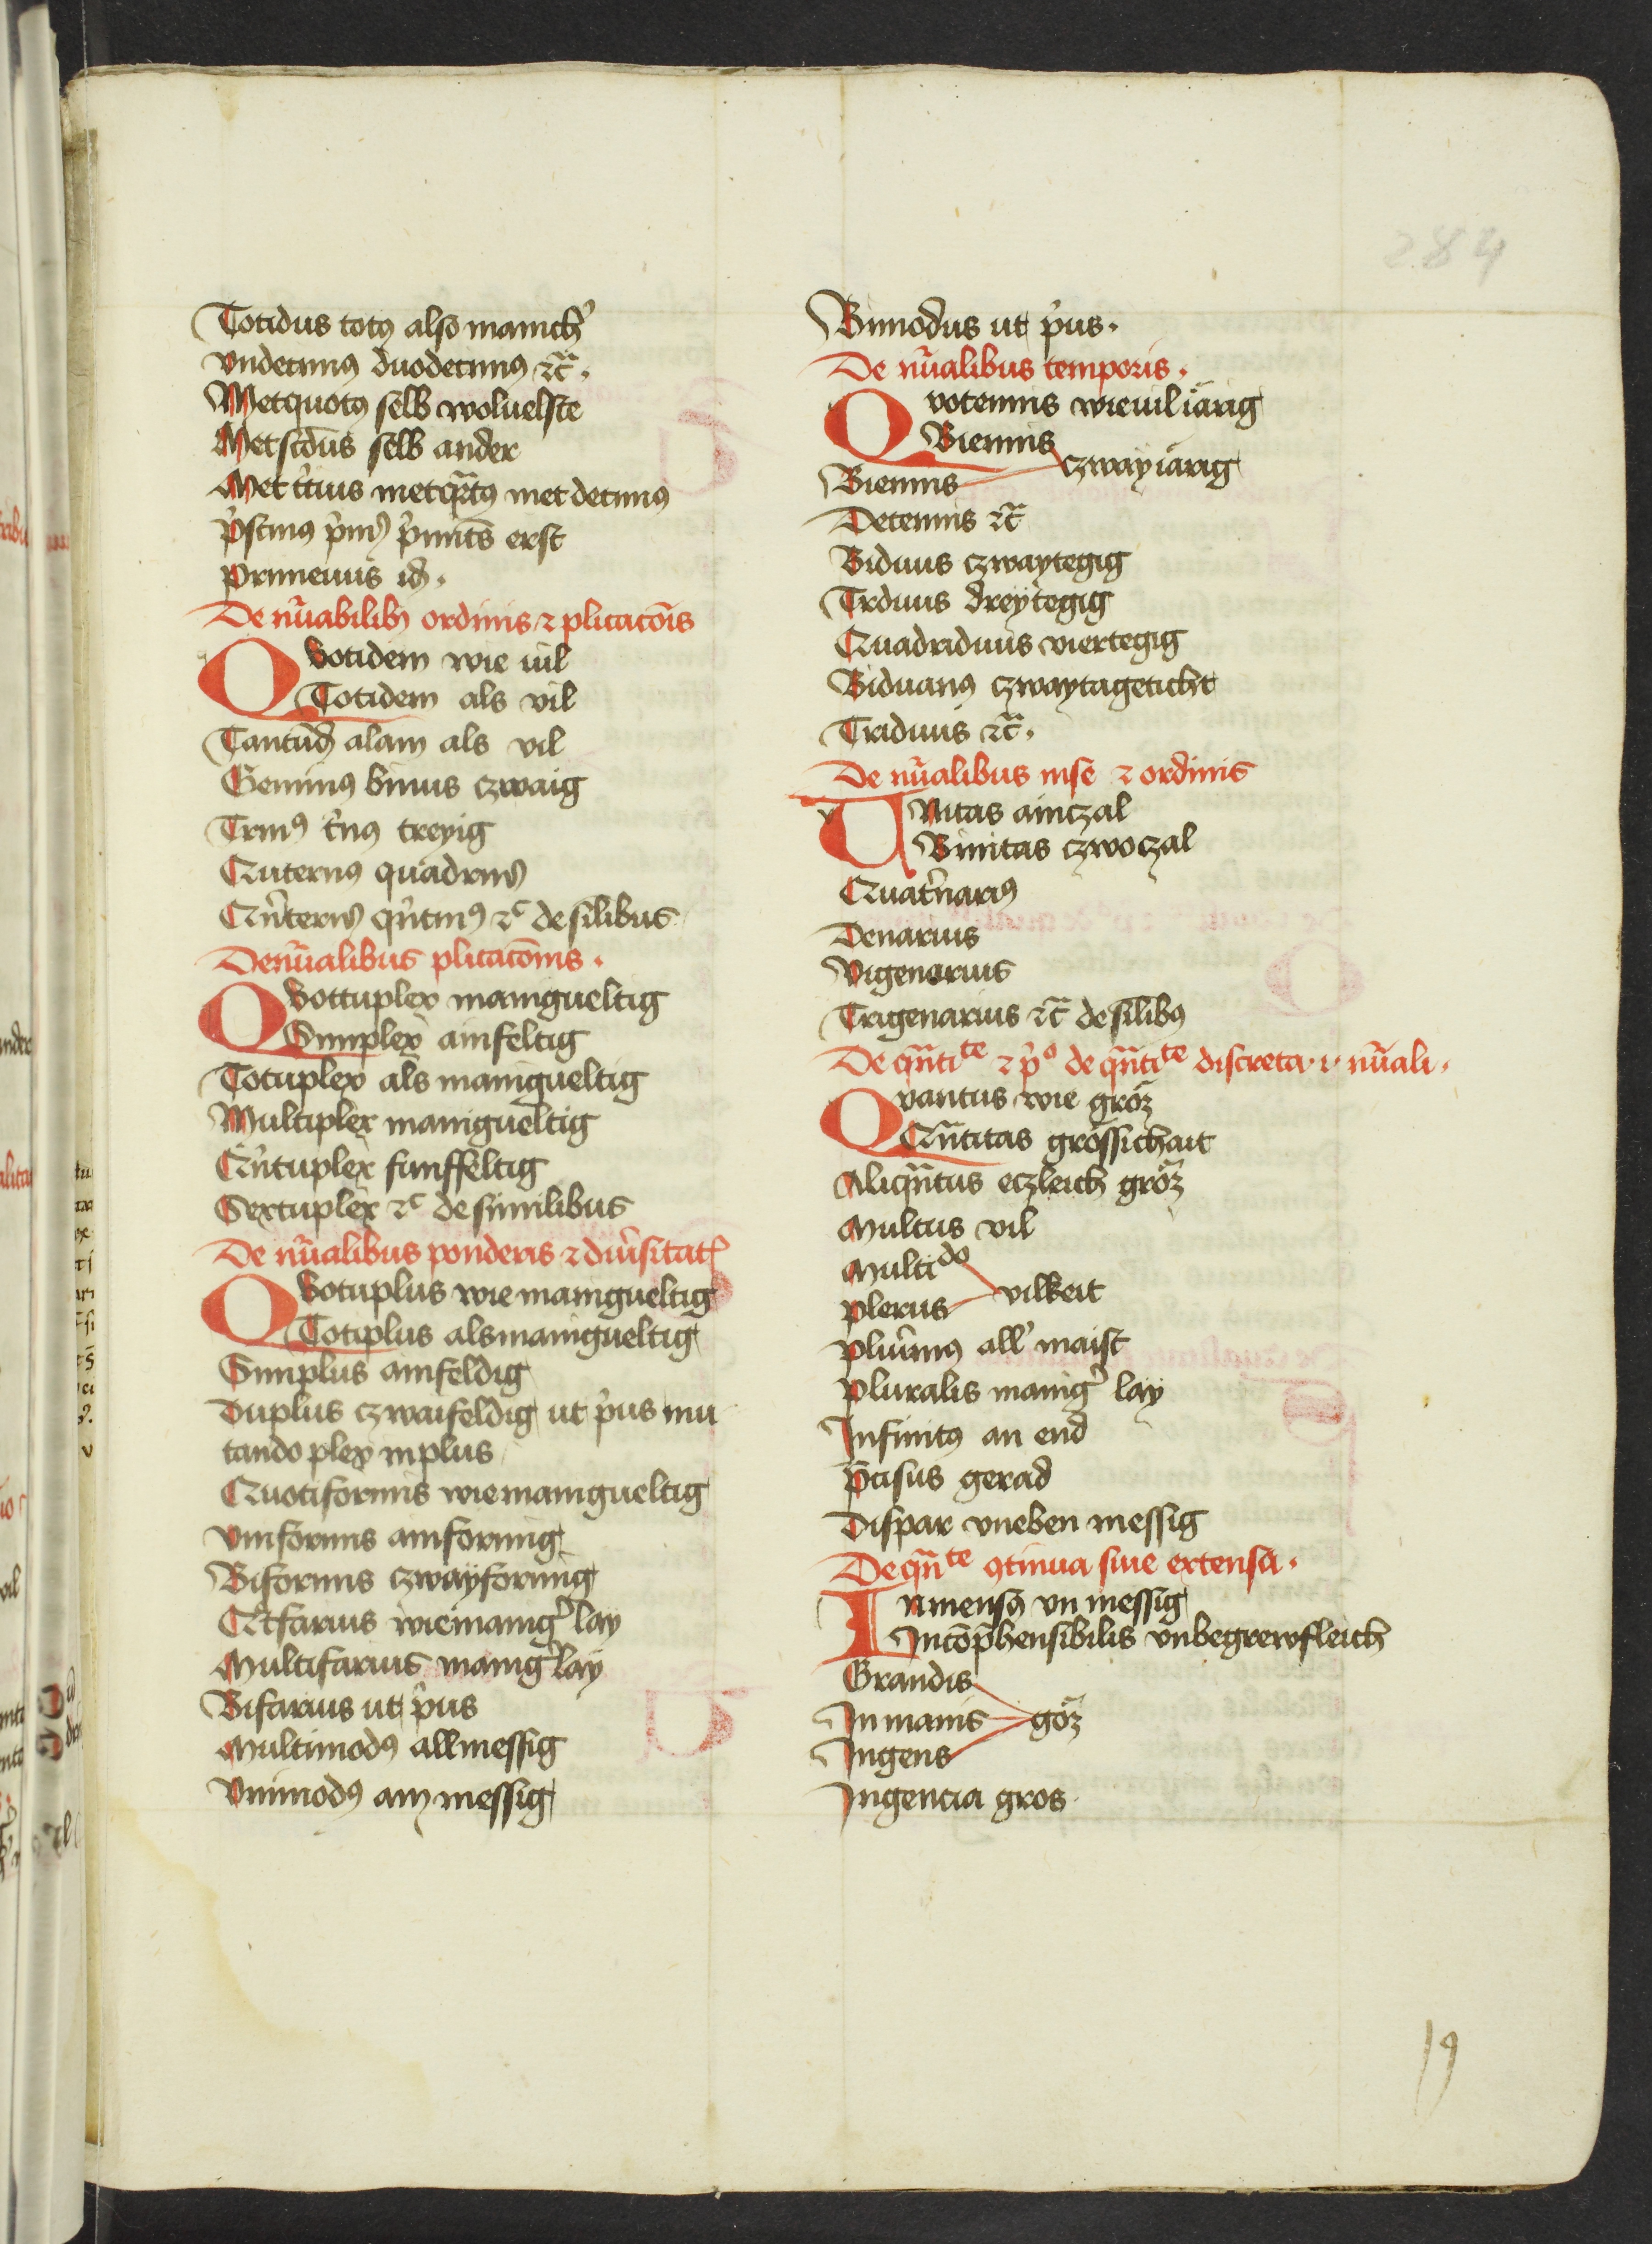 284
Totidus totꝰ also manich̾
vndecimꝰ duodecimꝰ ⁊c̃.
Metquotꝰ selb woluelste
Metscd̄us selb ander
Met t̾cius metqͣrtꝰ met decimꝰ
p̾stinꝰ p̾mꝰ p̾mit̄s erst
Primeuus id̄.
De nũabilibꝫ ordinis ⁊ plicatōis
Quotidem wie uil
Totidem als vil
Tantūd̄ alam als vil
Geminꝰ binus czwaig
Trinꝰ t̾nꝰ treyig
Quternꝰ quadrinꝰ
Qn̾ternꝰ qn̾tinꝰ ⁊c̃ de silibus
De nũalibus plicatōnis.
Quottuplex manigueltig
Simplex ainfeltig
Totuplex als manigueltig
Multiplex manigueltig
Qn̾tuplex funffeltig
Sextuplex ⁊c̃ de similibus
De nũalibus ponderis ⁊ diu̾sitatꝭ
Quotuplus wie manigueltig
Totiplus als manigueltig
Simplus ainfeldig
Duplus czwaifeldig ut p̾us mu
tando plex in plus
Quotiformis wie manigueltig
Vniformis ainformig
Biformis czwayformig
Qͦtfarius wie manig̾ lay
Multifarius manig̾ lay
Bifarius ut p̾us
Multimodꝰ allmessig
Vnimodꝰ ain messig
Bimodus ut p̾us.
De nũalibus temporis.
Quotennis wieuil iärig
Biennis
Biennis czway iärig
Decennis ⁊c̃
Biduus czwaytegig
Trduus dreytegig
Quadriduus viertegig
Biduanꝰ czwaytageticht
Triduus ⁊c̃.
De nũalibus mse ⁊ ordinis
Vnitas ainczal
Binitas czwoczal
Quat̾nariꝰ
Denarius
Vigenarius
Trigenarius ⁊c̃ de silibꝰ
De qn̄titͤ ⁊ p̾ͦ de qn̄titͤ discreta .i. nũali.
Quantus wie gröz
Qn̄titas grössichait
Aliqn̄tus eczleich gröz
Multus vil
Multidͦo
Plerus vilkeit
Plu̾imꝰ all̾ maist
Pluralis manig̾ lay
Infinitꝰ an end
P̄cisus gerad
Dispar vneben messig
De qn̄tͤ ꝯtinua siue extensa.
Inmensꝰ vn messig
Incōp̄hensibilis vnbegrewfleich
Grandis
Inmanis göz
Ingens
Ingencia gros
19